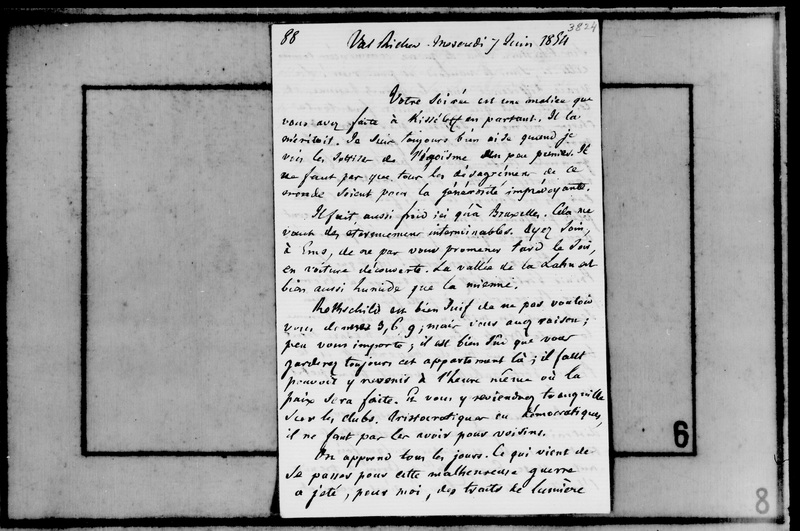 3824
88 Val Richer. Mercredi 7 Juin 1854
Votre soirée est une malice que
vous avez faite à Kisseleff en partant. Il la
méritait. Je suis toujours bien aise quand je
vois les sottises de l'égoïsme un peu punies. Il
ne faut pas que tous les désagrémens de ce
monde soient pour la générosité imprévoyante.
Il fait aussi froid ici qu'à Bruxelles. Cela me
vaut des éternuemens interminables. Ayez soin,
à Ems, de ne pas vous promener tard le soir,
en voiture découverte. La vallée de la Lahn est
bien aussi humide que la mienne.
Rothschild est bien Juif de ne pas vouloir
vous donner 3, 6, 9; mais vous avez raison;
peu vous importe; il est bien sûr que vous
garderez toujours cet appartement là; il faut
pouvoir y revenir à l'heure même où la
paix sera faite. Et vous y reviendrez tranquille
sur les clubs. Aristocratiques ou démocratiques,
il ne faut pas les avoir pour voisins.
On apprend tous les jours. Ce qui vient de
se passer pour cette malheureuse guerre
a jeté, pour moi, des traits de lumière
6
8